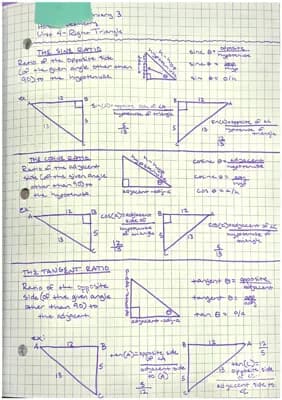 Unit 4 - Right Triangle
THE SINE RATIO
Ratio of the opposite
side (of the given angle other than
90) to the hypotenuse
sine θ = opposite
hypotenuse
sine θ = opp
hyp
sin θ = o/h
ex:
A 12 B
13 5
C
sin(A) = opposite side of ∠A
hypotenuse of
triangle
5
13
B 12 A
5 13
C
sin(C) = opposite side of ∠C
hypotenuse of
triangle
12
13
THE COSINE RATIO
Ratio of the adjacent
side (of the given angle
other than 90) to
the hypotenuse
adjacent-adj-a
cosine θ = adjacent
hypotenuse
cosine θ = adj
hyp
cos θ = a/h
ex:
A 12 B
13 5
C
cos(A) = adjacent
side of
hypotenuse
of triangle
12
13
B 12 A
5 13
C
cos(C) = adjacent of ∠C
hypotenuse of
triangle
5
13
THE TANGENT RATIO
Ratio of the opposite
side (of the given angle
other than 90) to
the adjacent
adjacent-adj-a
tangent θ = opposite
adjacent
tangent θ = opp
adj
tan θ = o/a
ex:
A 12 B
13 5
C
tan(A) = opposite side
of ∠A
adjacent side
to (A)
5
12
B 12 A
5 13
C
12
5
tan(C) =
opposite side
of C
adjacent side to
C